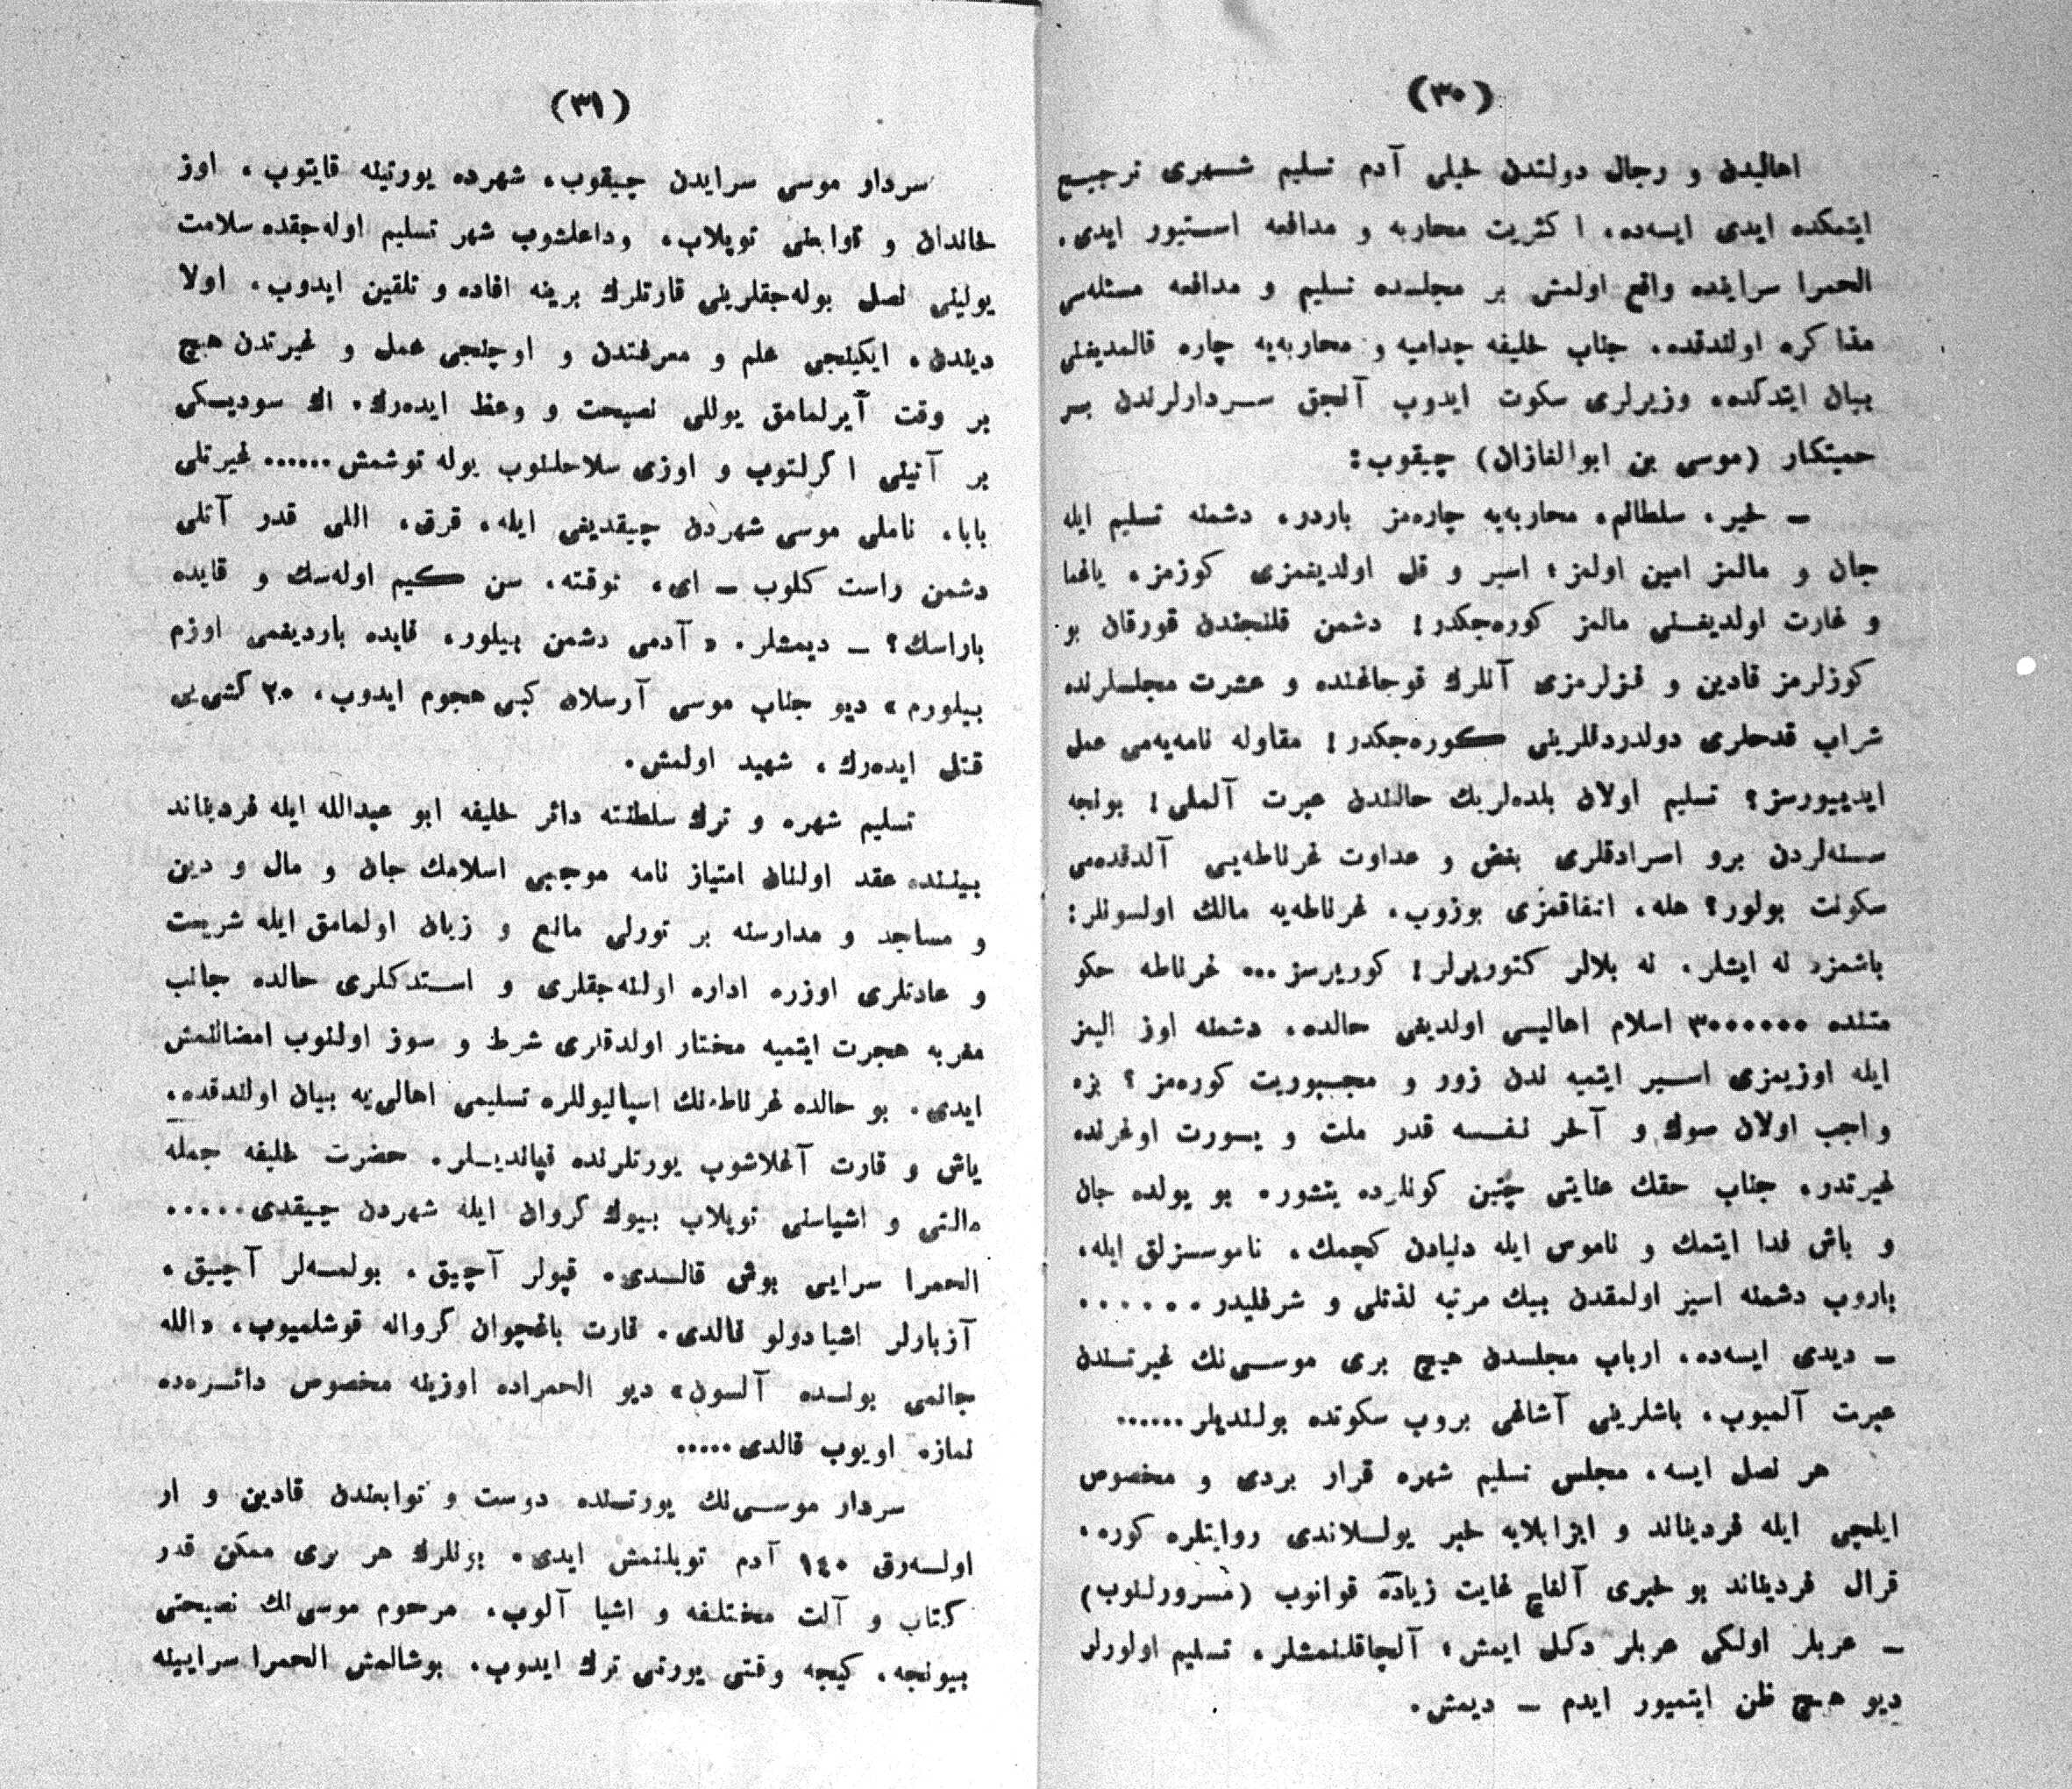 (٣٠)
اهالیدن و رجال دولتدن خیلی آدم تسلیم شهری ترجیع
ایتمکده ایدی ایسه‌ده، اکثریت محاربه و مدافعه استیور ایدی.
الحمرا سراینده واقع اولمش بر مجلسده تسلیم و مدافعه مسئله‌سی
مذاکره اولندقده، جناب خلیفه چدامیه و محاربه‌یه چاره قالمدیغنی
بیان ایتدکده، وزیرلری سکوت ایدوب آنجق سردارلرندن بر
حمیتکار (موسی بن ابوالغازان) چیقوب:
— خیر، سلطانم، محاربه‌یه چاره‌مز باردر، دشمنه تسلیم ایله
جان و مالمز امین اولمز؛ اسیر و قل اولدیغمزی کوزمز، یاغما
و غارت اولدیغنی مالمز کوره‌جکدر! دشمن قلنجندن قورقان بو
کوزلرمز قادین و قزلرمزی آنلرك قوجاغنده و عشرت مجلسلرنده
شراب قدحلری دولدردقلرینی کوره‌جکدر! مقاوله نامه‌یه‌می عمل
ایدییورسز؟ تسلیم اولان بلده‌لریك حالندن عبرت آلملی! بونجه
سنه‌لردن برو اصرادقلری بغض و عداوت غرناطه‌یی آلدقده‌می
سکونت بولور؟ هله، اتفاقمزی بوزوب، غرناطه‌یه مالك اولسونلر:
باشمزه نه ایشلر، نه بلالر کتوریرلر! کوریرسز... غرناطه حکو
متنده ٣٠٠٠٠٠٠ اسلام اهالیسی اولدیغی حالده، دشمنه اوز الیمز
ایله اوزیمزی اسیر ایتمیه ندن زور و مجبوریت کوره‌مز؟ بزه
واجب اولان صوك و آخر نفسه قدر ملت و یورت اوغرنده
غیرتدر، جناب حقك عنایتی چتین کونلرده یتشور، بو یولده جان
و باش فدا ایتمك و ناموس ایله دنیادن کچمك، ناموسسزلق ایله،
باروب دشمنه اسیر اولمقدن بیك مرتبه لذتلی و شرفلیدر ......
— دیدی ایسه‌ده، ارباب مجلسدن هیچ بری موسی‌نك غیرتندن
عبرت آلمیوب، باشلرینی آشاغی بروب سکوتده بولندیلر......
هر نصل ایسه، مجلس تسلیم شهره قرار بردی و مخصوص
ایلچی ایله فردیناند و ایزابلایه خبر یوللاندی روایتلره کوره،
قرال فردیناند بو خبری آلغاچ غایت زیاده قوانوب (مسرورلنوب)
— عربلر اولکی عربلر دکل ایمش؛ آلچاقلنمشلر، تسلیم اولورلر
دیو هیچ ظن ایتمیور ایدم — دیمش.
(٣١)
سردار موسی سرایدن چیقوب، شهرده یورتینه قایتوب، اوز
خاندان و توابعنی توپلاب، وداعلشوب شهر تسلیم اوله‌جقده سلامت
یولینی نصل بوله‌جقلرینی قارتلرك برینه افاده و تلقین ایدوب، اولا
دیندن، ایکینجی علم و معرفتدن و اوچنجی عمل و غیرتدن هیچ
بر وقت آیرلمامق یوللی نصیحت و وعظ ایده‌رك، اك سودیکی
بر آتینی اکرلتوب و اوزی سلاحلنوب یوله توشمش...... غیرتلی
بابا، ناملی موسی شهردن چیقدیغی ایله، قرق، اللی قدر آتلی
دشمن راست کلوب — ای، توقته، سن کیم اوله‌سك و قایده
باراسك؟ — دیمشلر. «آدمی دشمن بیلور، قایده باردیغمی اوزم
بیلورم» دیو جناب موسی آرسلان کبی هجوم ایدوب، ٢٠ کشی‌یی
قتل ایده‌رك، شهید اولمش.
تسلیم شهره و ترك سلطنته دائر خلیفه ابو عبدالله ایله فردیناند
بیننده عقد اولنان امتیاز نامه موجبی اسلامك جان و مال و دین
و مساجد و مدارسنه بر تورلی مانع و زیان اولمامق ایله شریعت
و عادتلری اوزره اداره اولنه‌جقلری و استدکلری حالده جانب
مغربه هجرت ایتمیه مختار اولدقلری شرط و سوز اولنوب امضالنمش
ایدی. بو حالده غرناطه‌نك اسپانیوللره تسلیمی اهالی‌یه بیان اولندقده،
یاش و قارت آغلاشوب یورتلرنده قپاندیلر. حضرت خلیفه جمله
مالنی و اشیاسنی توپلاب بیوك کروان ایله شهردن چیقدی.....
الحمرا سرایی بوش قالدی. قپولر آچیق، بولمه‌لر آچیق،
آزبارلر اشیا دولو قالدی. قارت باغچوان کروانه قوشلمیوب، «الله
جانمی بولده آلسون» دیو الحمراده اوزینه مخصوص دائره‌ده
نمازه اویوب قالدی.....
سردار موسی‌نك یورتنده دوست و توابعندن قادین و ار
اوله‌رق ١٤٠ آدم توپلنمش ایدی. بونلرك هر بری ممکن قدر
کتاب و آلت مختلفه و اشیا آلوب، مرحوم موسی‌نك نصیحتی
بیونجه، کیجه وقتی یورتی ترك ایدوب، بوشالمش الحمرا سرایینه